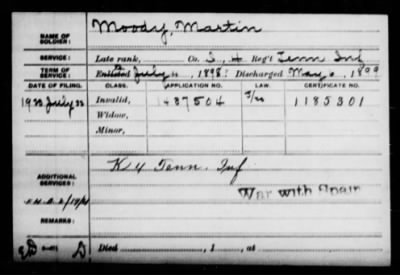 NAME OF SOLDIER: Moody, Martin
SERVICE: Late rank, Co. Reg't Tenn Inf
TERM OF SERVICE: Enlisted July 1898 Discharged May 6, 1899
DATE OF FILING. CLASS. APPLICATION NO. LAW. CERTIFICATE NO.
July Invalid, 1185301
Widow,
Minor,
ADDITIONAL SERVICES: K 4 Tenn. Inf
War with Spain
REMARKS:
Died , 1 , at